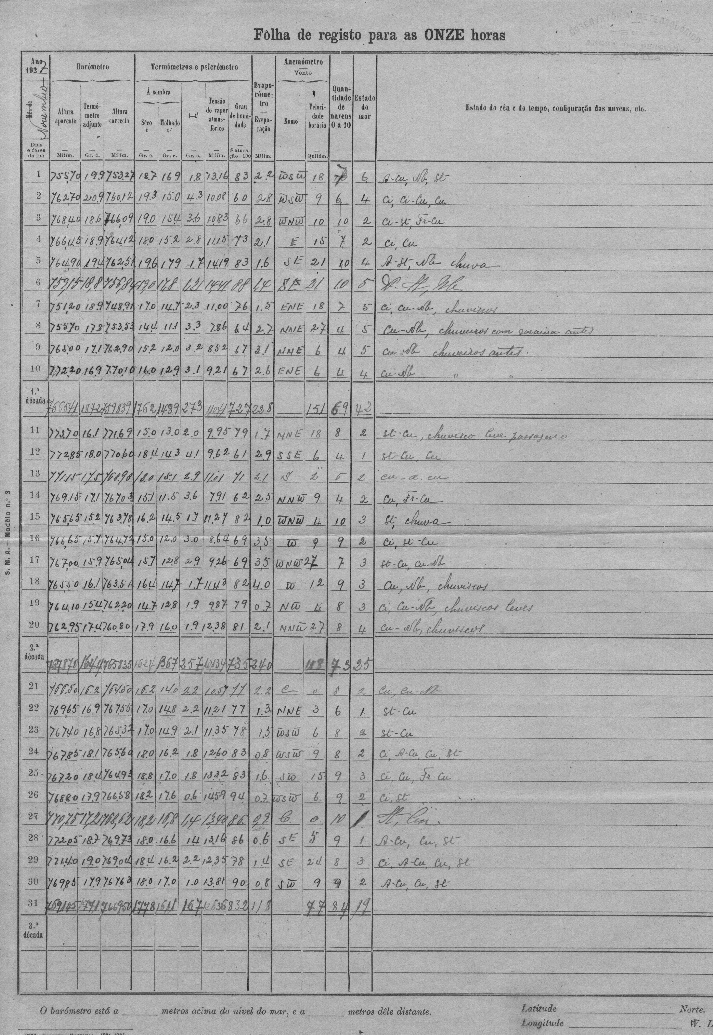 Folha de registo para as ONZE horas
Ano 1937
Mês de Novembro
Barómetro
Termómetros e psicrómetro
Evaporómetro
Anemómetro
Vento
Quantidade de nuvens 0 a 10
Estado do mar
Estado do céu e do tempo, configuração das nuvens, etc.
Altura aparente
Termómetro adjunto
Altura correcta
Á sombra
Sêco t
Molhado t'
t-t'
Tensão do vapor atmosférico
Evaporação
Rumo
Velocidade horária
1 755,70 19,9 753,27 18,7 16,9 1,8 13,16 83 2,2 WSW 18 7 6 A-Cu, Nb, St
2 762,70 20,9 760,12 19,3 15,0 4,3 10,08 60 2,8 WSW 9 6 4 Ci, Ci-Cu, Cu
3 768,40 18,6 766,09 19,0 15,4 3,6 10,83 66 2,8 WNW 10 10 2 Ci-St, Fr-Cu
4 766,45 18,9 764,12 18,0 15,2 2,8 11,15 73 2,1 E 15 7 2 Ci, Cu
5 764,90 19,4 762,51 19,6 17,9 1,7 14,19 83 1,6 SE 21 10 4 A-St, Nb chuva
6 SE 21 10 5
7 751,20 18,9 748,91 17,0 14,7 2,3 11,00 76 1,5 ENE 18 7 5 Ci, Cu-Nb, chuviscos
8 755,70 17,9 753,53 14,4 11,1 3,3 7,86 64 2,7 NNE 27 4 5 Cu-Nb, chuviscos com granizo antes
9 765,00 17,1 762,90 15,2 12,0 3,2 8,52 67 3,1 NNE 6 4 5 Cu-Nb chuviscos antes.
10 772,20 16,9 770,10 16,0 12,9 3,1 9,21 67 2,6 ENE 6 4 4 Cu-Nb " "
1.ª década 151 69 42
11 773,70 16,1 771,69 15,0 13,0 2,0 9,95 79 1,7 NNE 18 8 2 St-Cu, chuvisco leve passageiro
12 772,85 18,0 770,60 18,4 14,3 4,1 9,62 61 2,9 SSE 6 4 1 St-Cu, Cu
13 S 2 5 2
14 769,15 17,1 767,03 15,1 11,5 3,6 7,91 62 2,5 NNW 9 4 2 Cu, Fr-Cu
15 765,65 15,2 763,78 16,2 14,5 1,7 11,27 82 1,0 WNW 4 10 3 St, chuva
16 766,65 15,7 764,72 15,0 12,0 3,0 8,64 69 3,5 W 9 9 2 Ci, St-Cu
17 767,00 15,9 765,04 15,7 12,8 2,9 9,26 69 3,5 WNW 27 7 3 St-Cu, Cu-Nb
18 765,50 16,1 763,51 16,4 14,7 1,7 11,43 82 4,0 W 12 9 3 Cu, Nb, chuviscos
19 764,10 15,4 762,20 14,7 12,8 1,9 9,87 79 0,7 NW 4 8 3 Ci, Cu-Nb, chuviscos leves
20 762,95 17,4 760,80 17,9 16,0 1,9 12,38 81 2,1 NNW 27 8 4 Cu-Nb, chuviscos
2.ª década 73 25
21 2,2 C 0 8 2 Cu, Cu-Nb
22 769,65 16,9 767,55 17,0 14,8 2,2 11,21 77 1,3 NNE 3 6 1 St-Cu
23 767,40 16,8 765,32 17,0 14,9 2,1 11,35 78 1,5 WSW 6 8 2 St-Cu
24 767,85 18,1 765,60 18,0 16,2 1,8 12,60 83 0,8 WSW 9 8 2 Ci, A-Cu, Cu, St
25 767,20 18,4 764,93 18,8 17,0 1,8 13,32 83 1,6 SW 15 9 3 Ci, Cu, Fr-Cu
26 768,80 17,9 766,58 18,2 17,6 0,6 14,59 94 0,7 WSW 6 9 2 Ci, St
27 C 0 10 1
28 772,05 18,7 769,73 18,0 16,6 1,4 13,16 86 0,6 SE 5 9 1 A-Cu, Cu, St
29 771,40 19,0 769,04 18,4 16,2 2,2 12,35 78 1,4 SE 24 8 3 Ci, A-Cu, Cu, St
30 769,85 17,9 767,63 18,0 17,0 1,0 13,81 90 0,8 SW 9 9 2 A-Cu, Cu, St
31 77 84 19
3.ª década
S. M. A. Modêlo n.º 3
O barómetro está a metros acima do nível do mar, e a metros dêle distante.
Latitude Norte.
Longitude